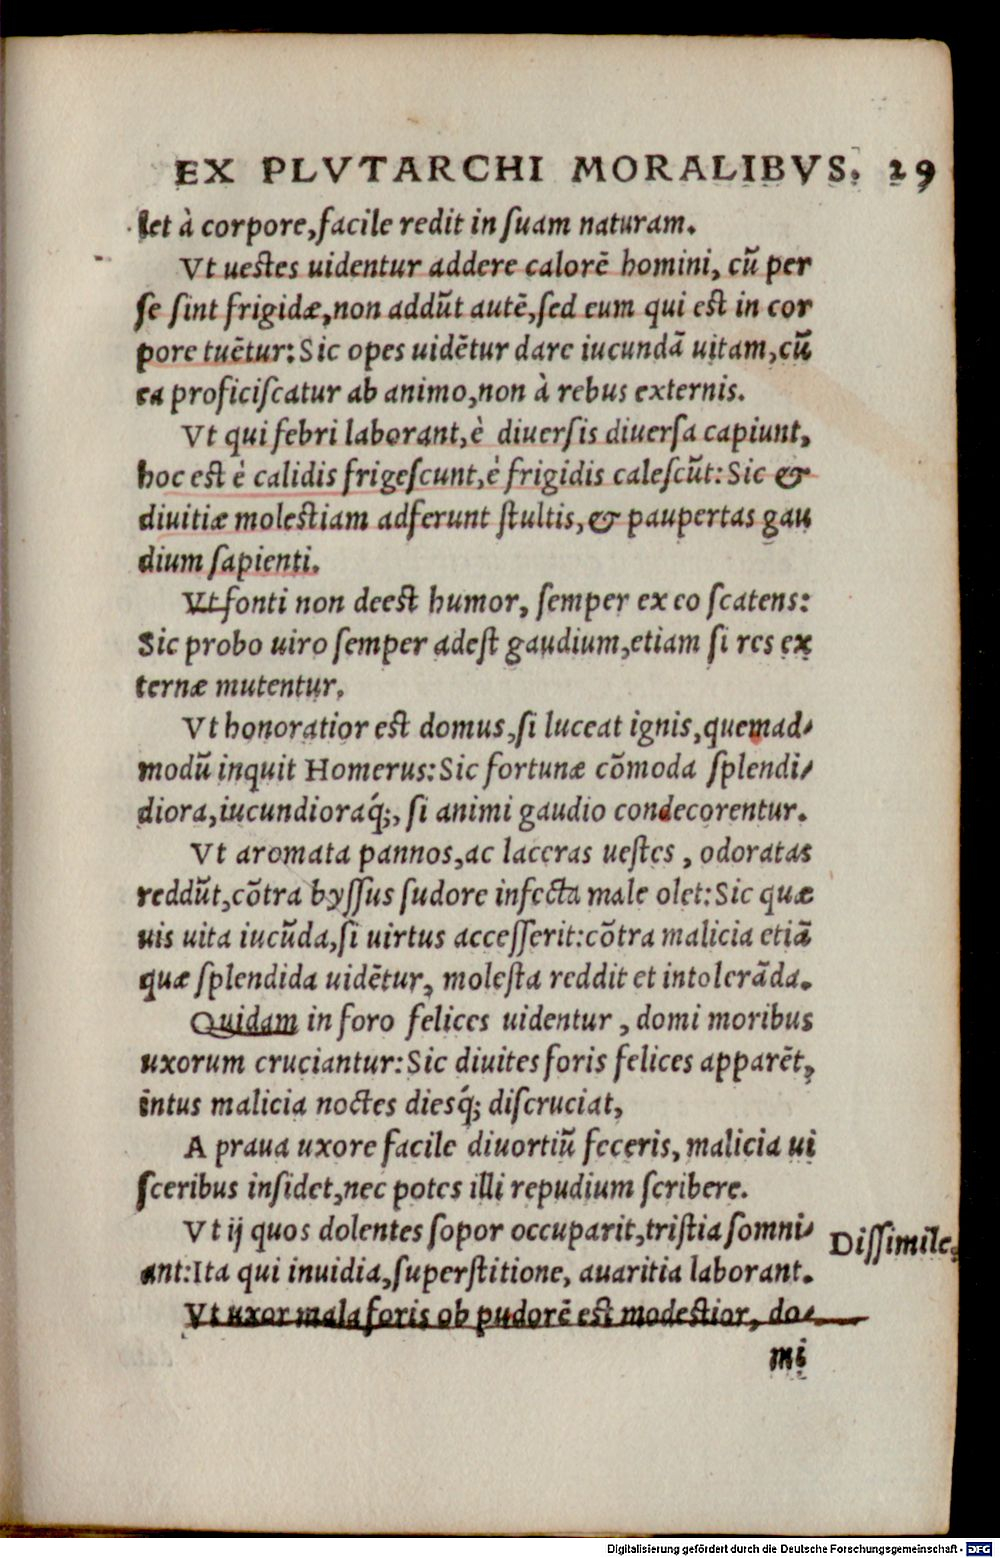 EX PLVTARCHI MORALIBVS. 29
let à corpore, facile redit in suam naturam.
Vt uestes uidentur addere calorē homini, cū per
se sint frigidæ, non addūt autē, sed eum qui est in cor
pore tuētur: Sic opes uidētur dare iucundā uitam, cū
ea proficiscatur ab animo, non à rebus externis.
Vt qui febri laborant, è diuersis diuersa capiunt,
hoc est è calidis frigescunt, è frigidis calescūt: Sic &
diuitiæ molestiam adferunt stultis, & paupertas gau
dium sapienti.
Vt fonti non deest humor, semper ex eo scatens:
Sic probo uiro semper adest gaudium, etiam si res ex
ternæ mutentur.
Vt honoratior est domus, si luceat ignis, quemad-
modū inquit Homerus: Sic fortunæ cōmoda splendi-
diora, iucundioraq́;, si animi gaudio condecorentur.
Vt aromata pannos, ac laceras uestes, odoratas
reddūt, cōtra byssus sudore infecta male olet: Sic quæ
uis uita iucūda, si uirtus accesserit: cōtra malicia etiā
quæ splendida uidētur, molesta reddit et intolerāda.
Quidam in foro felices uidentur, domi moribus
uxorum cruciantur: Sic diuites foris felices apparēt,
intus malicia noctes diesq́; discruciat,
A praua uxore facile diuortiū feceris, malicia ui
sceribus insidet, nec potes illi repudium scribere.
Vt ij quos dolentes sopor occuparit, tristia somni-
ant: Ita qui inuidia, superstitione, auaritia laborant.
Dissimile.
Vt uxor mala foris ob pudorē est modestior, do-
mi
Digitalisierung gefördert durch die Deutsche Forschungsgemeinschaft - DFG